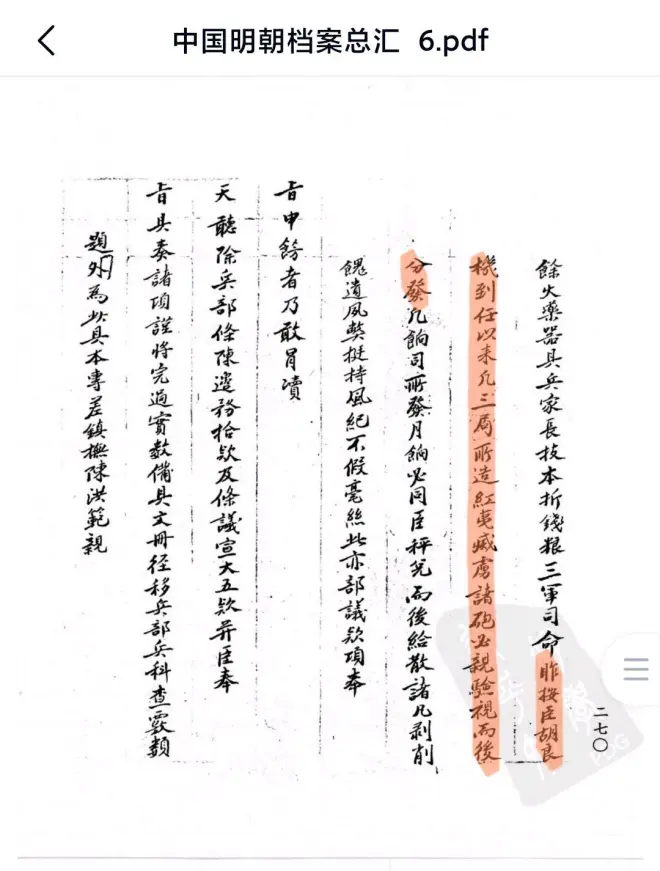 中国明朝档案总汇 6.pdf
餘火藥器具兵家長技本折錢粮三軍司命昨按臣胡良
機到任以来凢三局所造紅夷威虜諸砲必親驗視而後
分發凢餉司所發月餉必同臣秤兌而後給散諸凢剥削
餽遺風獘挺持風紀不假毫絲此亦部議欵項奉
旨申飭者乃敢冐瀆
天聽除兵部條陳邊務拾欵及條議宣大五欵并臣奉
旨具奏諸項謹將完過實數備具文冊径移兵部兵科查覈類
題外為此具本專差鎮撫陳洪範親
二七〇